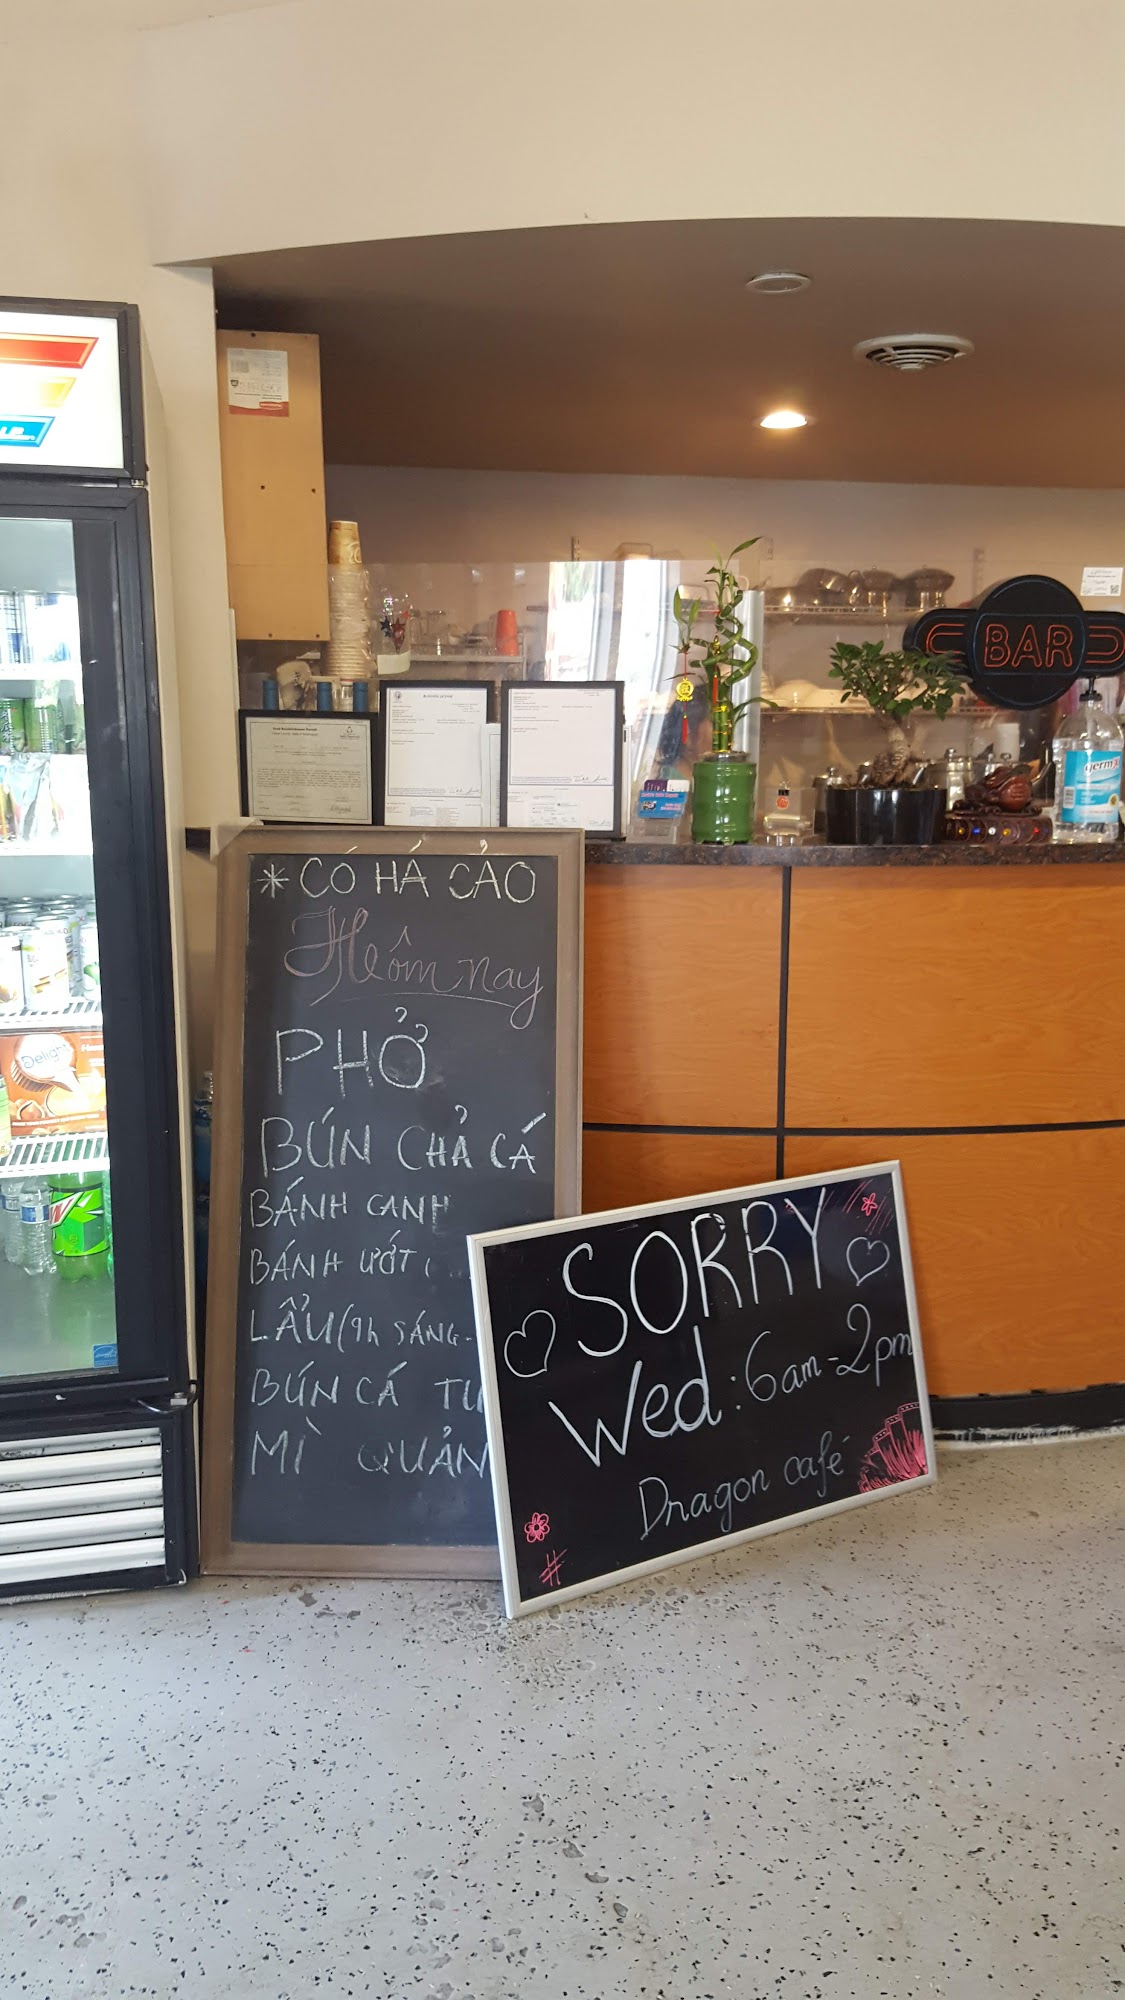 * CÓ HÁ CẢO
Hôm nay
PHỞ
BÚN CHẢ CÁ
BÁNH CANH
BÁNH ƯỚT
LẨU (9h SÁNG-
BÚN CÁ TU
MÌ QUẢN
SORRY
Wed: 6am-2pm
Dragon café
#
BAR
germ
Delight